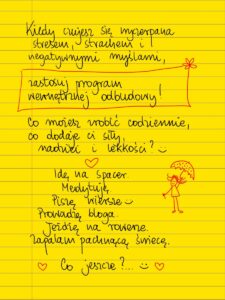 Kiedy czujesz się wyczerpana
stresem, strachem i
negatywnymi myślami,
zastosuj program
wewnętrznej odbudowy!
Co możesz zrobić codziennie,
co dodaje ci siły,
nadziei i lekkości?
Idę na spacer.
Medytuję.
Piszę wiersze
Prowadzę bloga.
Jeżdżę na rowerze.
Zapalam pachnącą świecę.
Co jeszcze?...